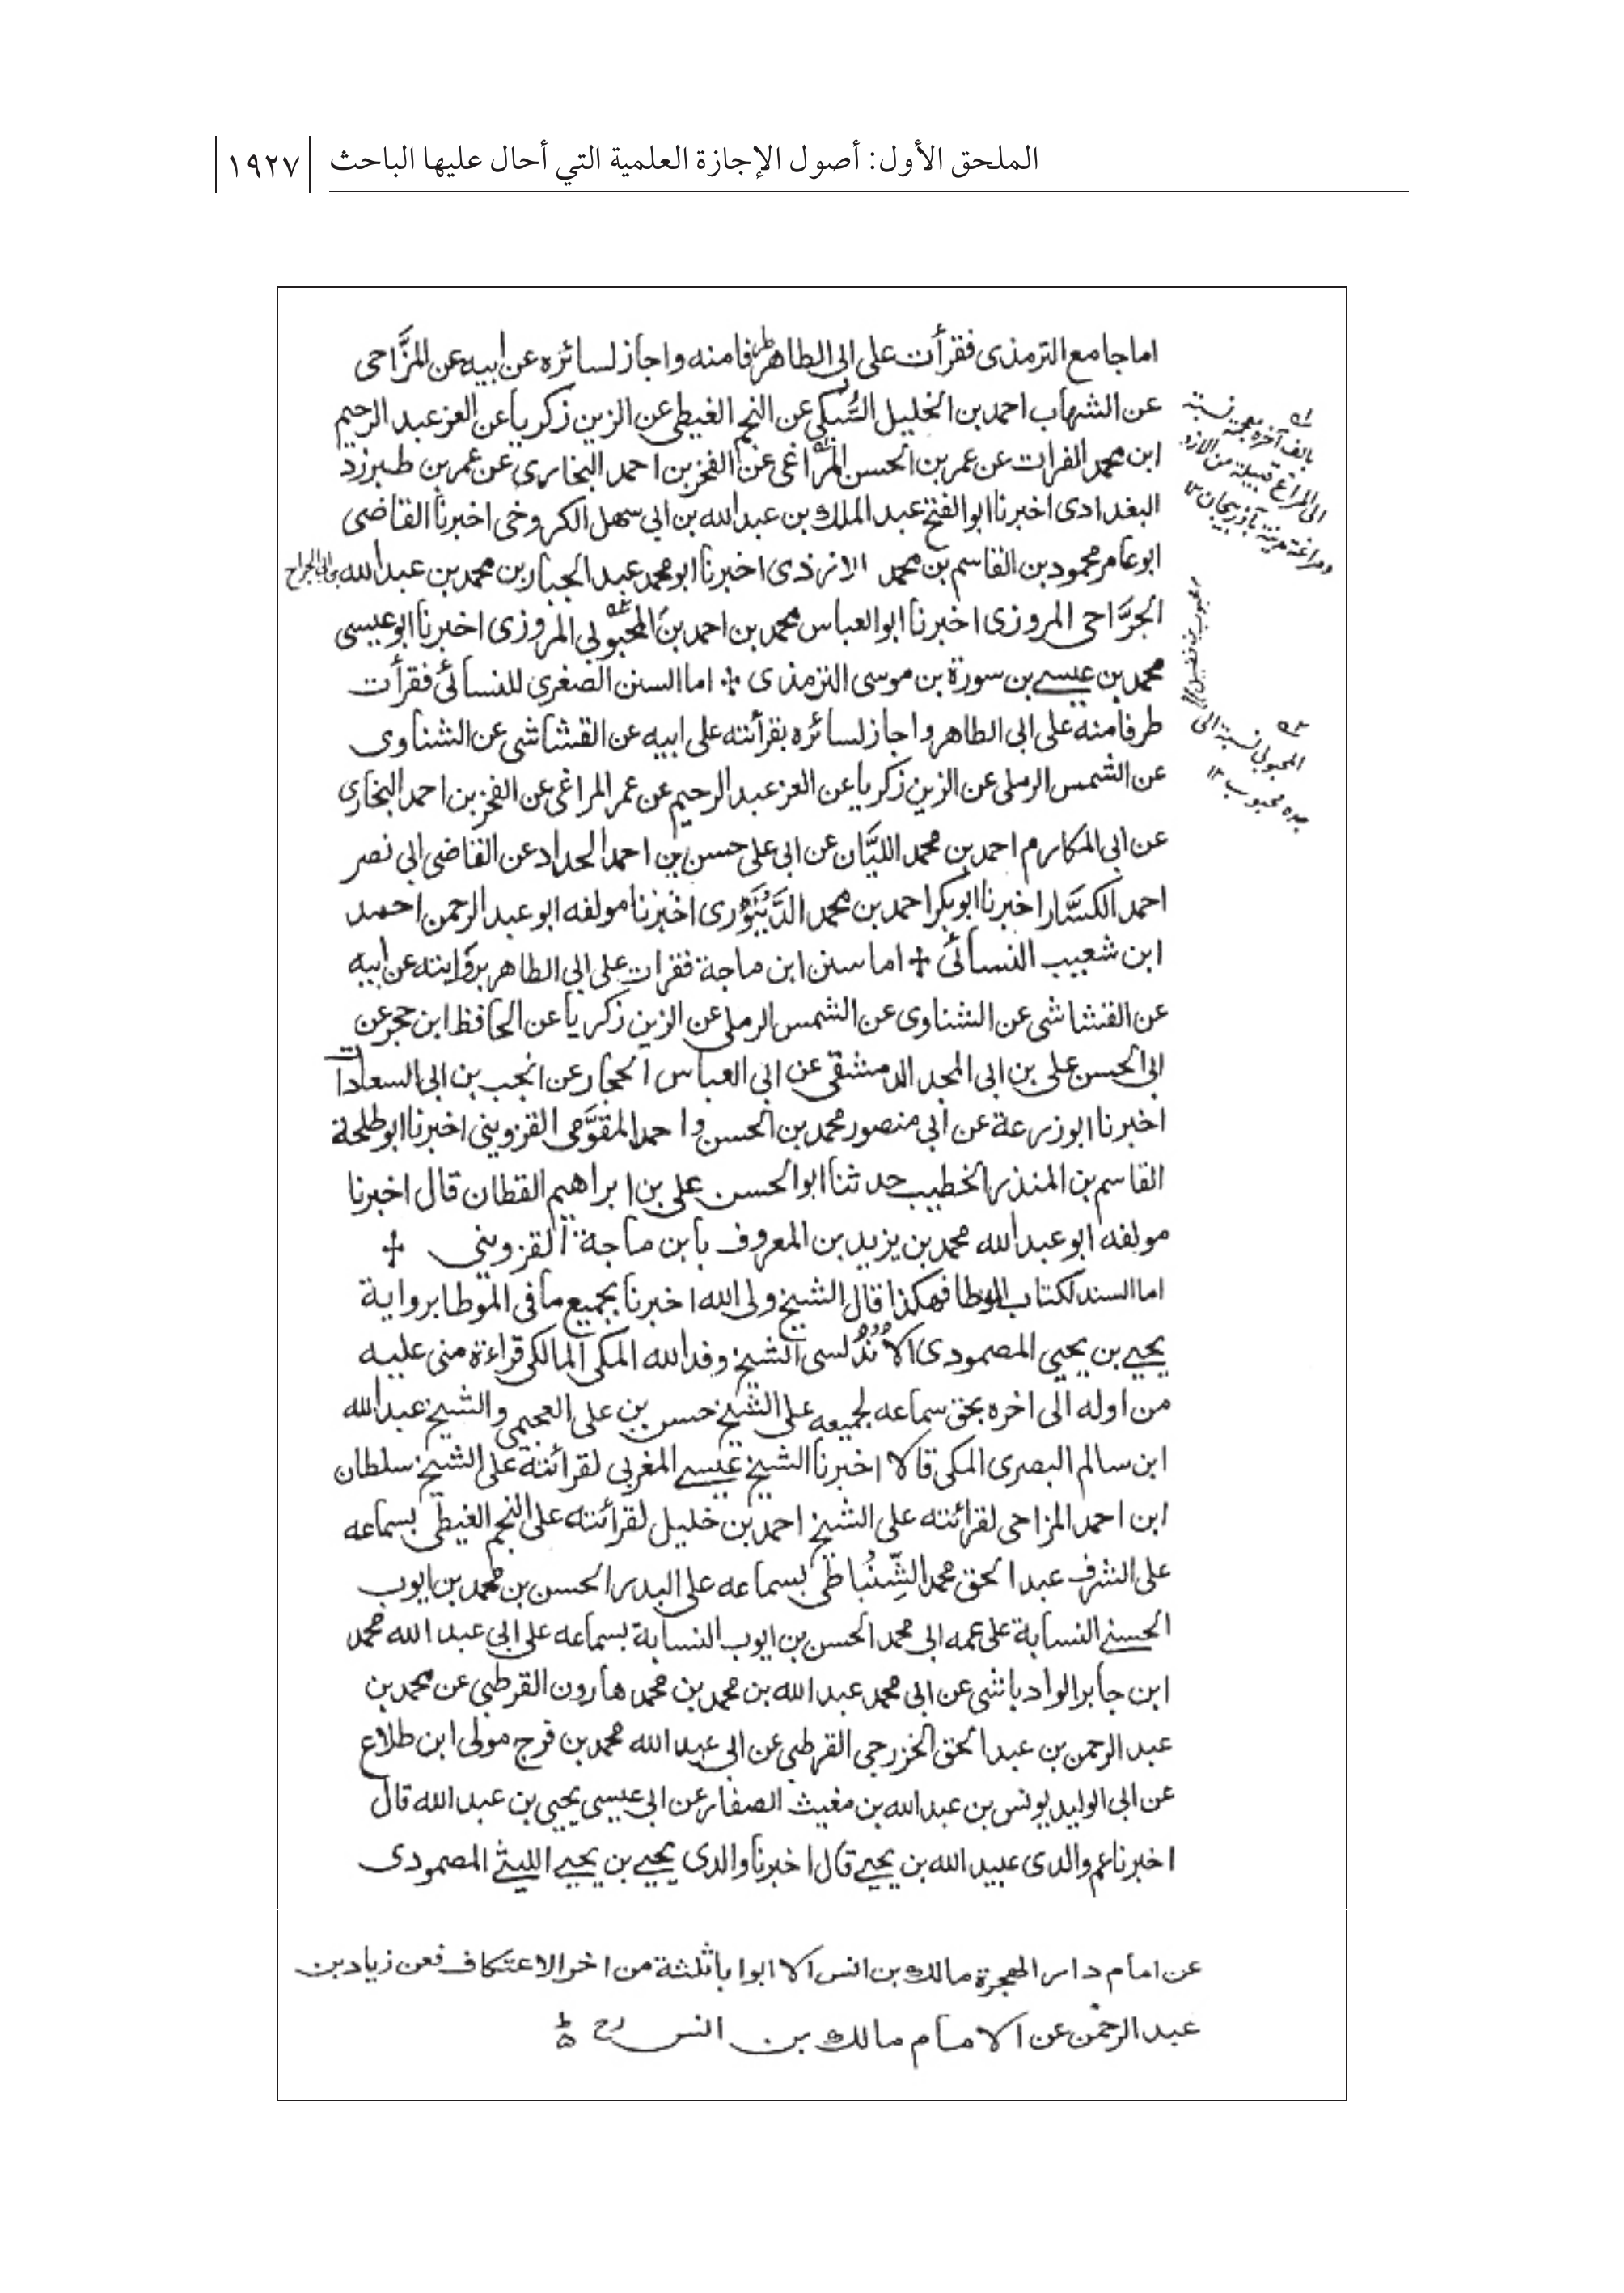 الملحق الأول: أصول الإجازة العلمية التي أحال عليها الباحث
١٩٢٧
اما جامع الترمذى فقرأت على ابى الطاهر طرفا منه واجاز لسائره عن ابيه عن المزَّاحى
عن الشهاب احمد بن الخليل السُّبكى عن النجم الغيطى عن الزين زكريا عن العز عبد الرحيم
ابن محمد الفرات عن عمر بن الحسن المراغى عن الفخر بن احمد البخارى عن عمر بن طبرزد
البغدادى اخبرنا ابو الفتح عبد الملك بن عبد الله بن ابى سهل الكروخى اخبرنا القاضى
ابو عامر محمود بن القاسم بن محمد الازدى اخبرنا ابو محمد عبد الجبار بن محمد بن عبد الله بن ابى الجراح
الجرَّاحى المروزى اخبرنا ابو العباس محمد بن احمد بن المحبوبى المروزى اخبرنا ابو عيسى
محمد بن عيسے بن سورة بن موسى الترمذى ✢ اما السنن الصغرى للنسائى فقرأت
طرفا منه على ابى الطاهر واجاز لسائره بقرأئته على ابيه عن القشاشى عن الشناوى
عن الشمس الرملى عن الزين زكريا عن العز عبد الرحيم عن عمر المراغى عن الفخر بن احمد البخارى
عن ابى المكارم احمد بن محمد اللبَّان عن ابى على حسن بن احمد الحداد عن القاضى ابى نصر
احمد الكسَّار اخبرنا ابو بكر احمد بن محمد الدَّيْنَوَرى اخبرنا مولفه ابو عبد الرحمن احمد
ابن شعيب النسائى ✢ اما سنن ابن ماجة فقرات على ابى الطاهر بروايته عن ابيه
عن القشاشى عن الشناوى عن الشمس الرملى عن الزين زكريا عن الحافظ ابن حجر عن
ابى الحسن على بن ابى المجد الدمشقى عن ابى العباس الحجار عن انجب بن ابى السعادات
اخبرنا ابو زرعة عن ابى منصور محمد بن الحسن و احمد المقوَّمى القزوينى اخبرنا ابو طلحة
القاسم بن المنذر الخطيب حدثنا ابو الحسن على بن ابراهيم القطان قال اخبرنا
مولفه ابو عبد الله محمد بن يزيد بن المعروف بابن ماجة القزوينى ✢
اما السند لكتاب الموطا فهكذا قال الشيخ ولى الله اخبرنا بجميع ما فى الموطا برواية
يحيے بن يحيي المصمودى الاُنْدُلسى الشيخ وفد الله المكى المالكى قراءة منى عليه
من اوله الى اخره بحق سماعه لجميعه على الشيخ حسن بن على العجيمى والشيخ عبد الله
ابن سالم البصرى المكى قالا اخبرنا الشيخ عيسے المغربى لقرائته على الشيخ سلطان
ابن احمد المزاحى لقرائته على الشيخ احمد بن خليل لقرائته على النجم الغيطى بسماعه
على الشرف عبد الحق محمد الشِّنْباطى بسماعه على البدر الحسن بن محمد بن ايوب
الحسنے النسابة على عمه ابى محمد الحسن بن ايوب النسابة بسماعه على ابى عبد الله محمد
ابن جابر الوادياشى عن ابى محمد عبد الله بن محمد بن محمد هارون القرطبى عن محمد بن
عبد الرحمن بن عبد الحق الخزرجى القرطبى عن ابى عبد الله محمد بن فرج مولى ابن طلاع
عن ابى الوليد يونس بن عبد الله بن مغيث الصفار عن ابى عيسى يحيى بن عبد الله قال
اخبرنا عم والدى عبيد الله بن يحيے قال اخبرنا والدى يحيے بن يحيے الليثے المصمودى
عن امام دار الهجرة مالك بن انس الا ابوابا ثلثة من اخر الاعتكاف فعن زياد بن
عبد الرحمن عن الامام مالك بن انس رح
بالف آخره معجمة نسبة
الى المراغ قبيلة من الازد
ومراغة مدينة بآذربيجان ١٢
المحبوبى نسبة الى
جده محبوب ١٢